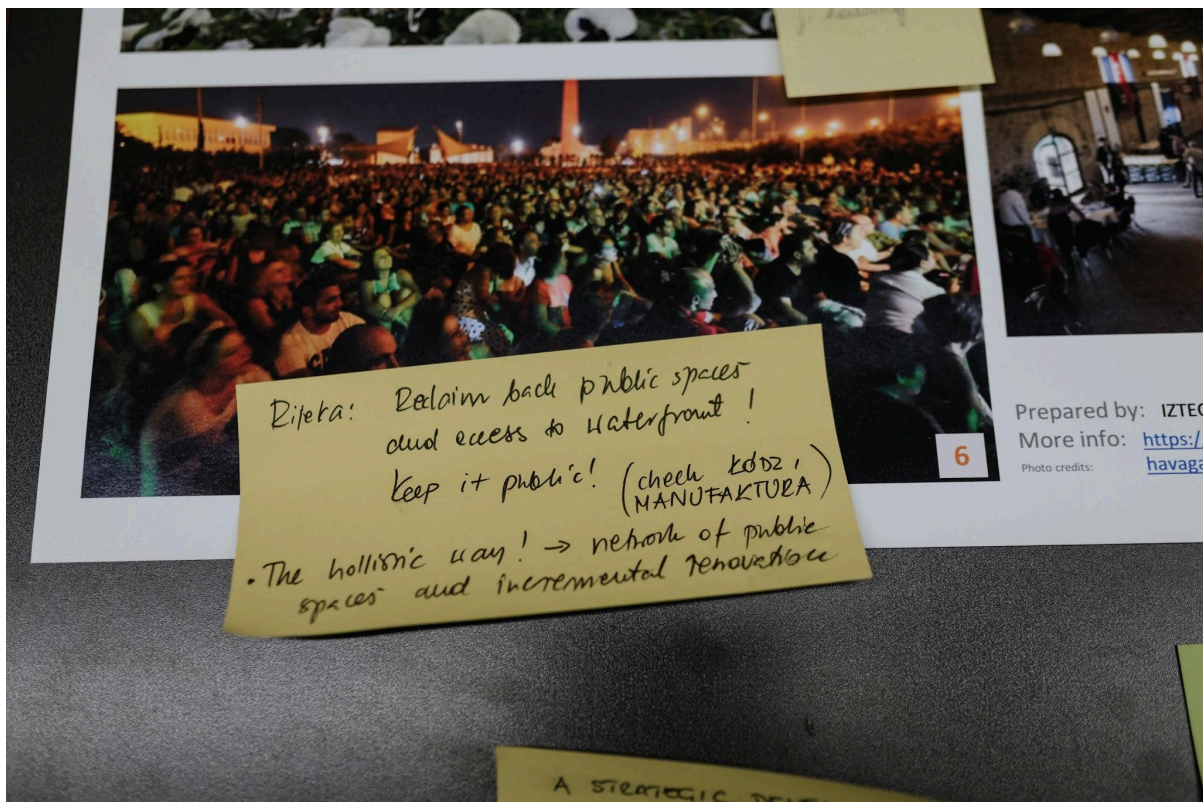 Rijeka: Reclaim back public spaces
and access to waterfront!
Keep it public! (check ŁÓDŹ,
MANUFAKTURA)
• The hollistic way! → network of public
spaces and incremental renovation
6
Prepared by: IZTEC
More info: https:/
Photo credits: havaga
A STRATEGIC